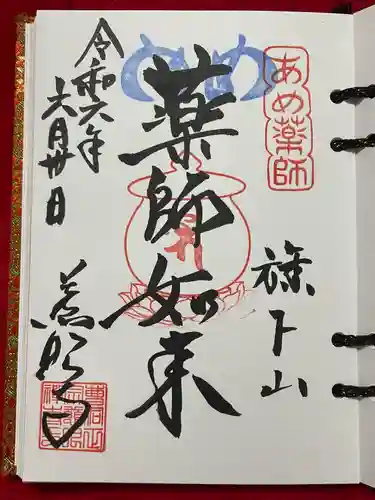 あめ薬師
下山
薬師如来
令和六年
六月廿日
善明寺